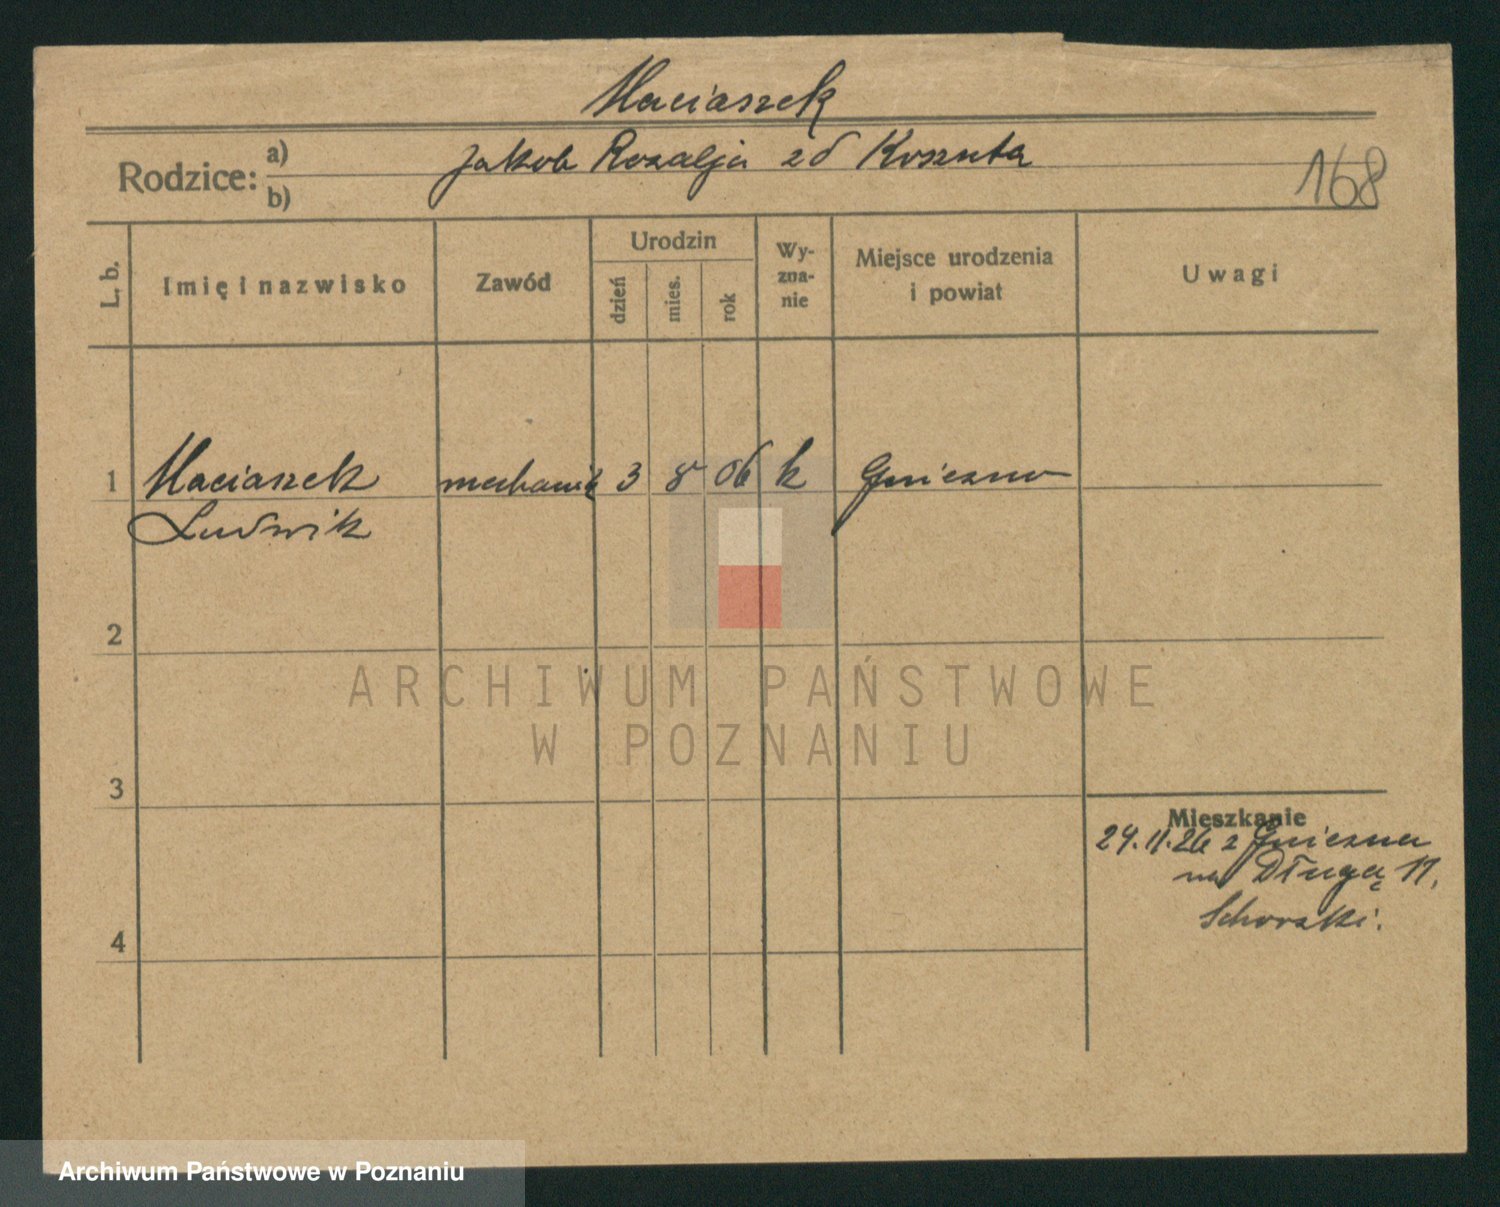 Maciaszek
Rodzice: a) b) Jakob Rozalja zd Koszuta
168
L. b. Imię i nazwisko Zawód Urodzin dzień mies. rok Wy-zna-nie Miejsce urodzenia i powiat Uwagi
1 Maciaszek mechanik 3 8 06 k Gniezno
Ludwik
2
ARCHIWUM PAŃSTWOWE
W POZNANIU
3
Mieszkanie
24.11.26 z Gniezna
na Długą 11,
4
Archiwum Państwowe w Poznaniu